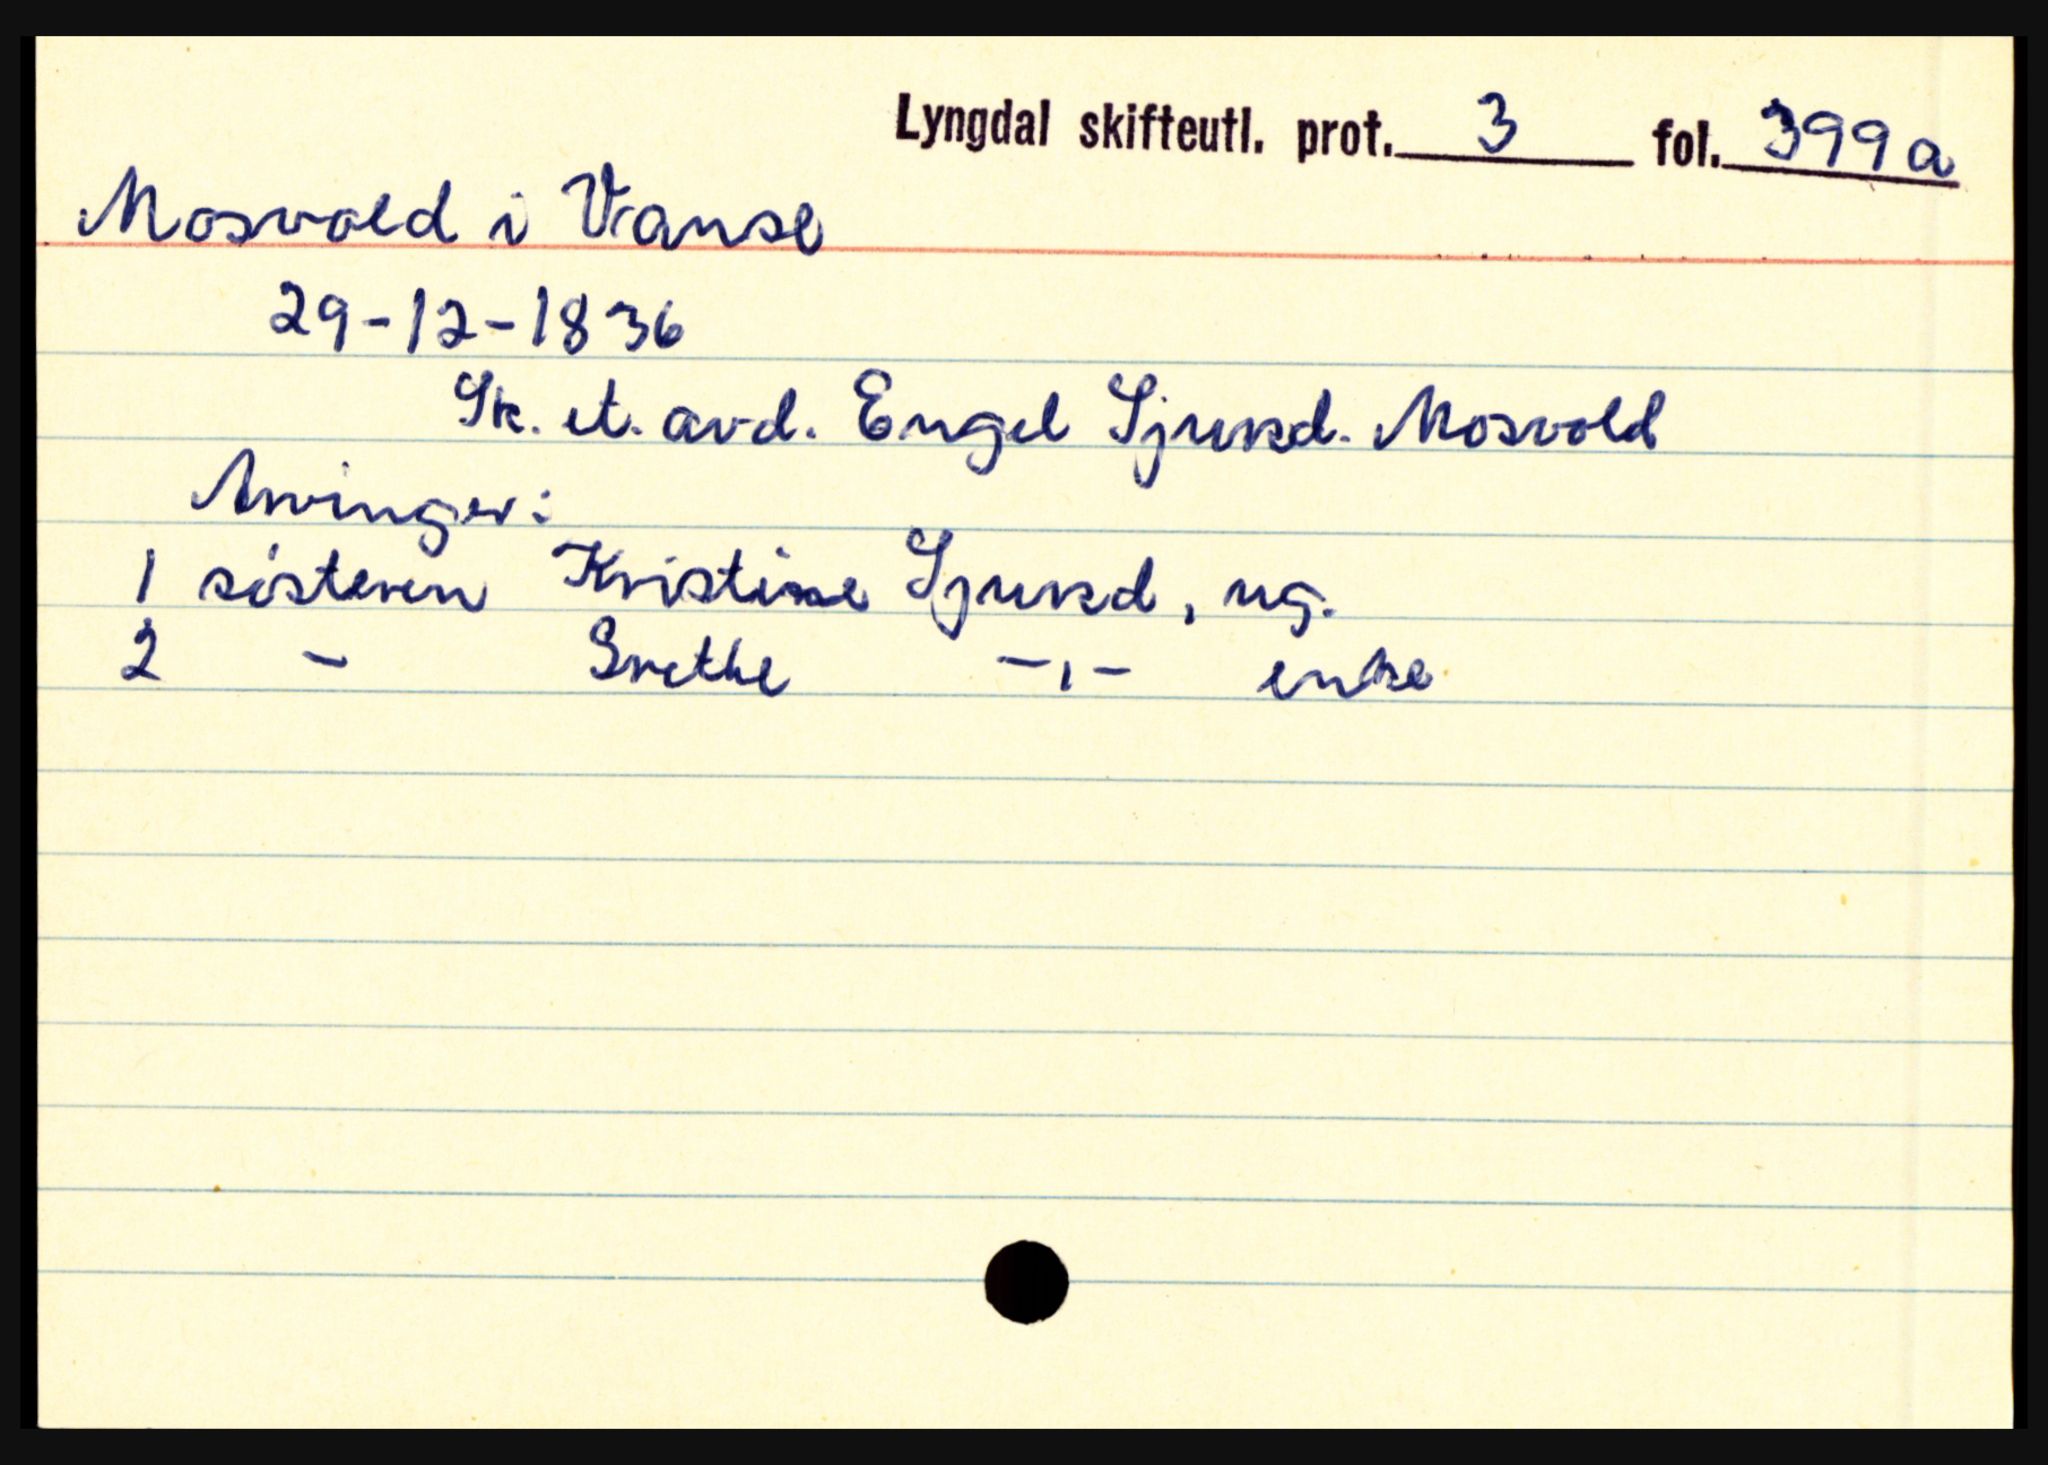 Lyngdal skifteutl. prot. 3 fol. 399a
Mosvold i Vanse
29-12-1836
Sk. et. avd. Engel Sjursd. Mosvold
Arvinger:
1 søsteren Kristine Sjursd, ug.
2 - Grethe -,- enke